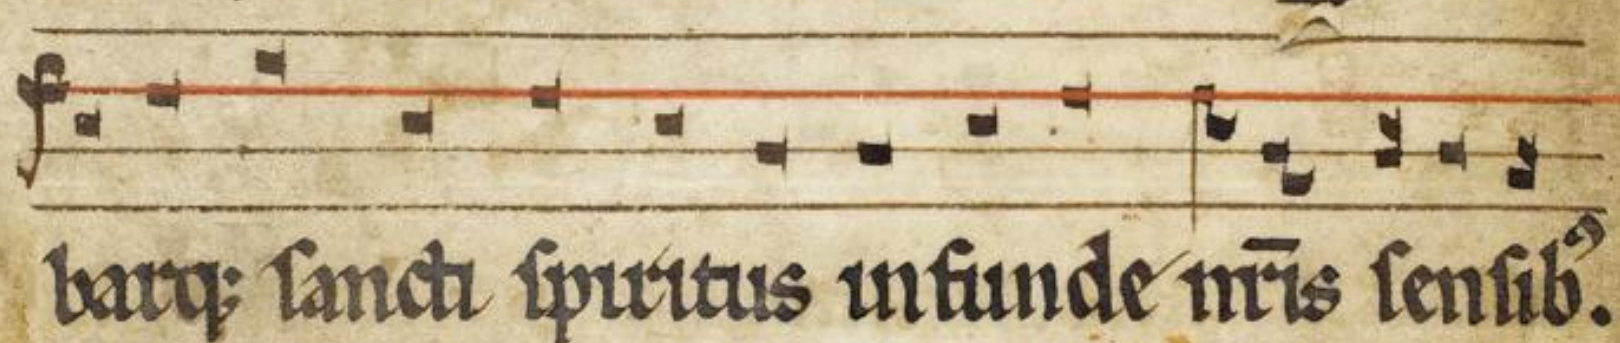 barq; sancti spiritus infunde nr̄is sensibꝰ.